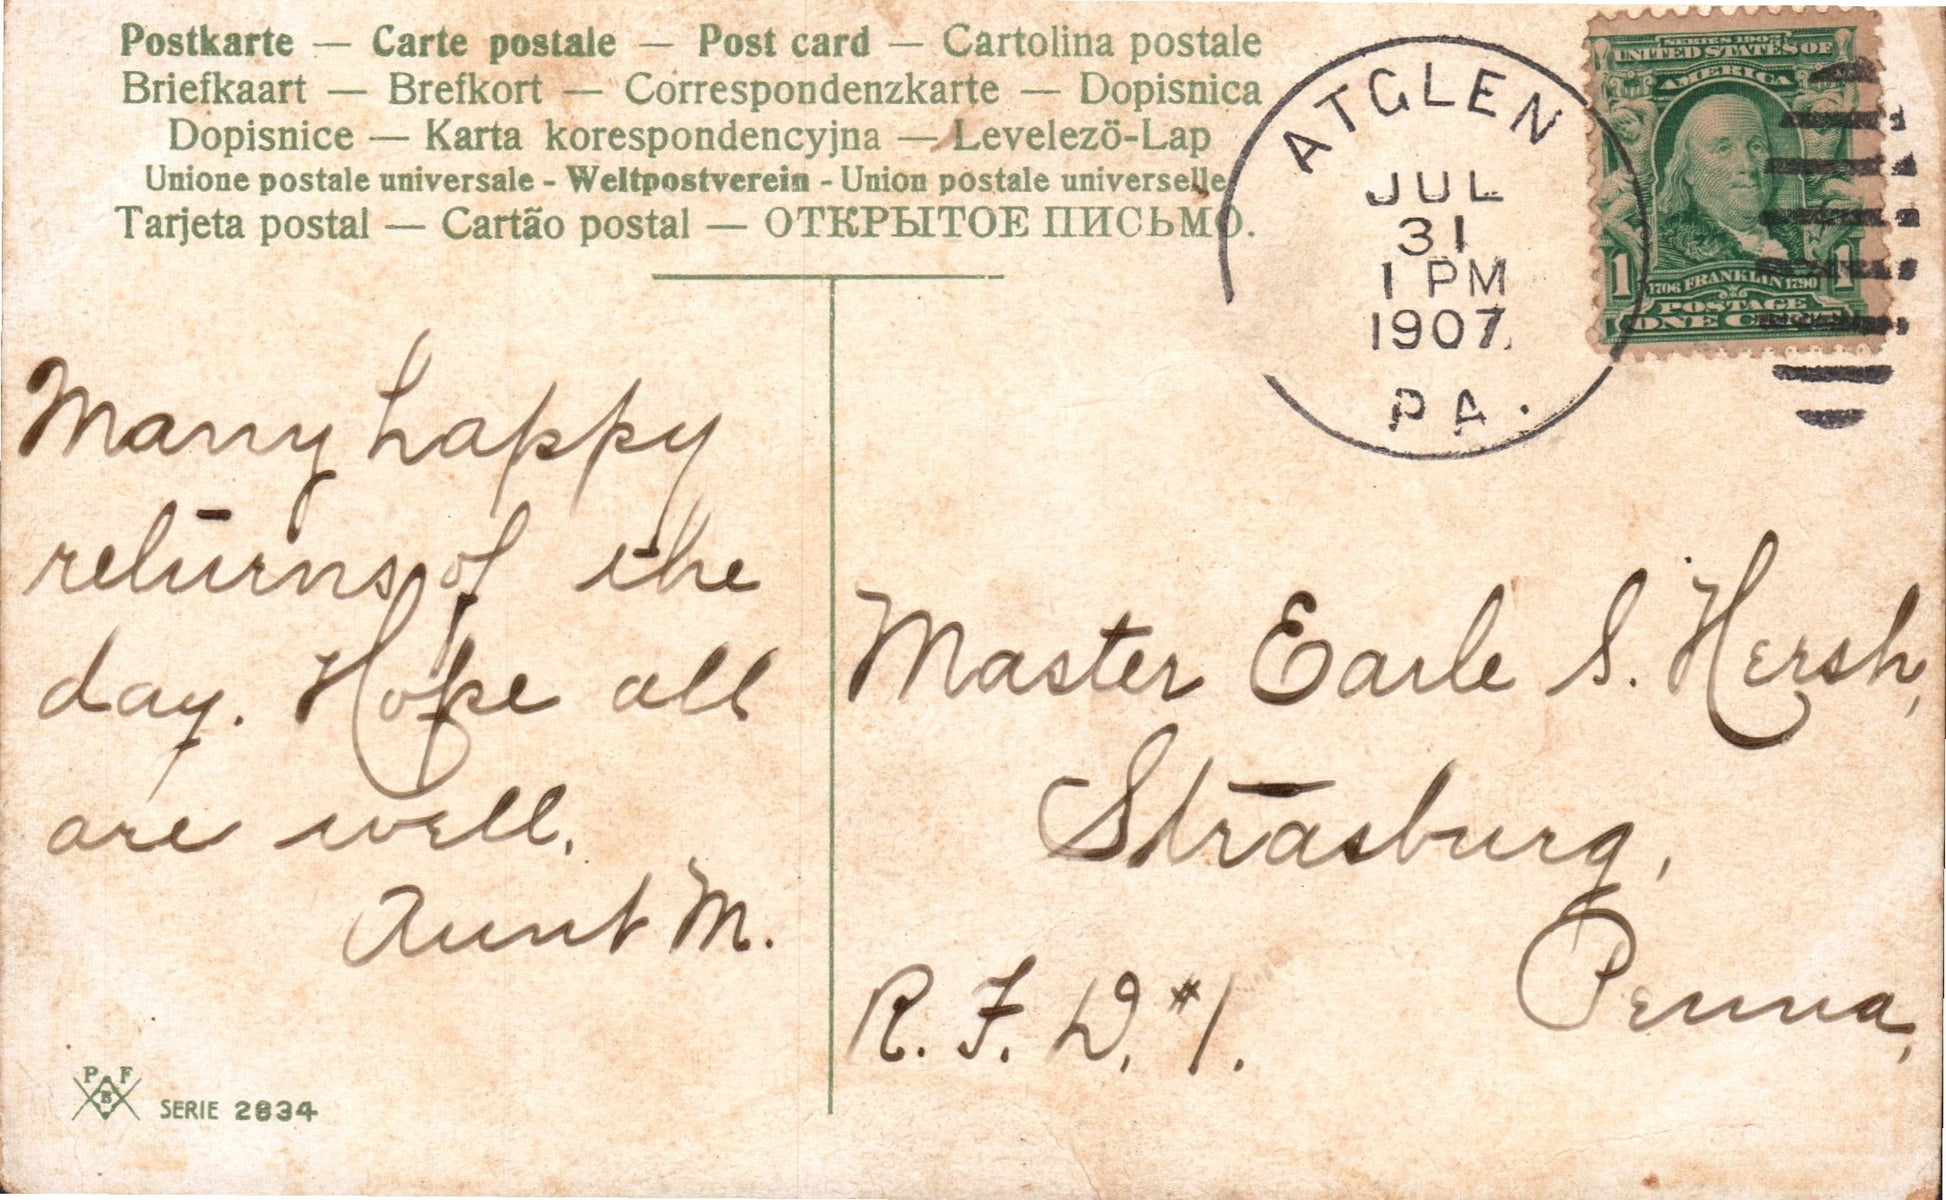 Postkarte — Carte postale — Post card — Cartolina postale
Briefkaart — Brefkort — Correspondenzkarte — Dopisnica
Dopisnice — Karta korespondencyjna — Levelezö-Lap
Unione postale universale - Weltpostverein - Union postale universelle
Tarjeta postal — Cartão postal — ОТКРЫТОЕ ПИСЬМО.
ATGLEN
JUL
31
1 PM
1907.
PA.
SERIES 1902
UNITED STATES OF
AMERICA
1 1706 FRANKLIN 1790 1
POSTAGE
ONE
Many happy
returns of the
day. Hope all
are well.
Aunt M.
Master Earle S. Hersh,
Strasburg,
Penna,
R. F. D. #1.
P F
B
SERIE 2834